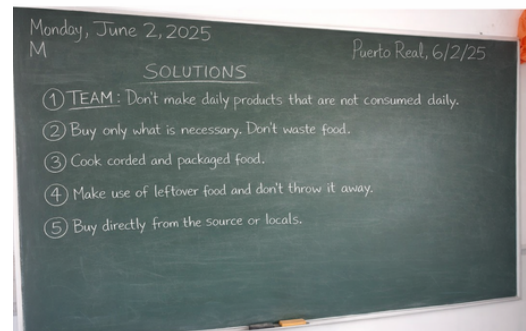 Monday, June 2, 2025
M
Puerto Real, 6/2/25
SOLUTIONS
① TEAM: Don't make daily products that are not consumed daily.
② Buy only what is necessary. Don't waste food.
③ Cook corded and packaged food.
④ Make use of leftover food and don't throw it away.
⑤ Buy directly from the source or locals.